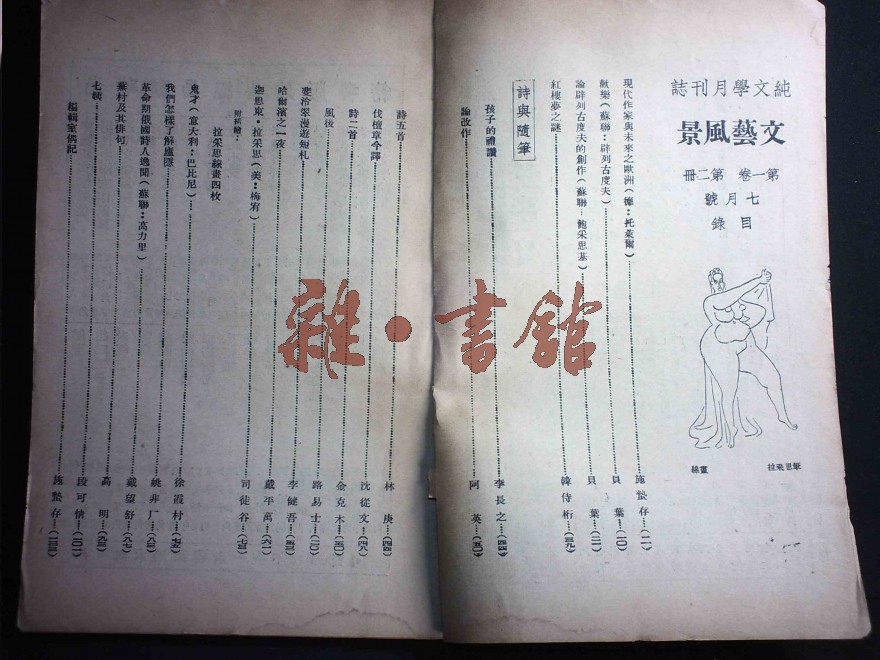 純文學月刊誌
文藝風景
第一卷 第二冊
七月號
目錄
筆思采拉
畫線
現代作家與未來之歐洲（德：托萊爾）……施蟄存…（二）
獻樂（蘇聯：辟列古度夫）……貝葉…（一〇）
論辟列古度夫的創作（蘇聯：飽采思基）……貝葉…（二一）
紅樓夢之謎……韓侍桁…（三九）
詩與隨筆
孩子的禮讚……李長之…（四四）
論改作……阿英…（五〇）
詩五首……林庚…（四四）
伐檀章今譯……沈從文…（四八）
詩二首……金克木…（五〇）
風後……路易士…（二〇）
斐冷翠漫遊短札……李健吾…（五三）
哈爾濱之一夜……戴平萬…（六一）
迦思東·拉采思（美：梅宥）……司徒谷…（七三）
附插繪：
拉采思線畫四枚
鬼才（意大利：巴比尼）……徐霞村…（七五）
我們怎樣了解盧騷……姚非厂…（八三）
革命期俄國詩人逸聞（蘇聯：高力里）……戴望舒…（八七）
蕪村及其俳句……高明…（九三）
七挽……段可情…（一〇一）
編輯室偶記……施蟄存…（一三三）
雜·書館